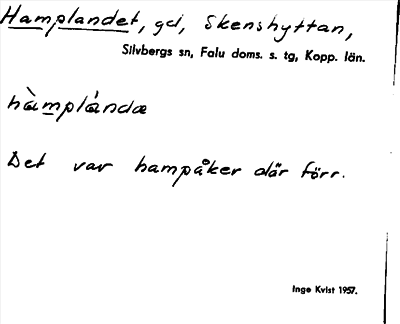 Hamplandet, gd, Skenshyttan,
Silvbergs sn, Falu doms. s. tg, Kopp. län.
hàmplándæ
Det var hampåker där förr.
Inge Kvist 1957.